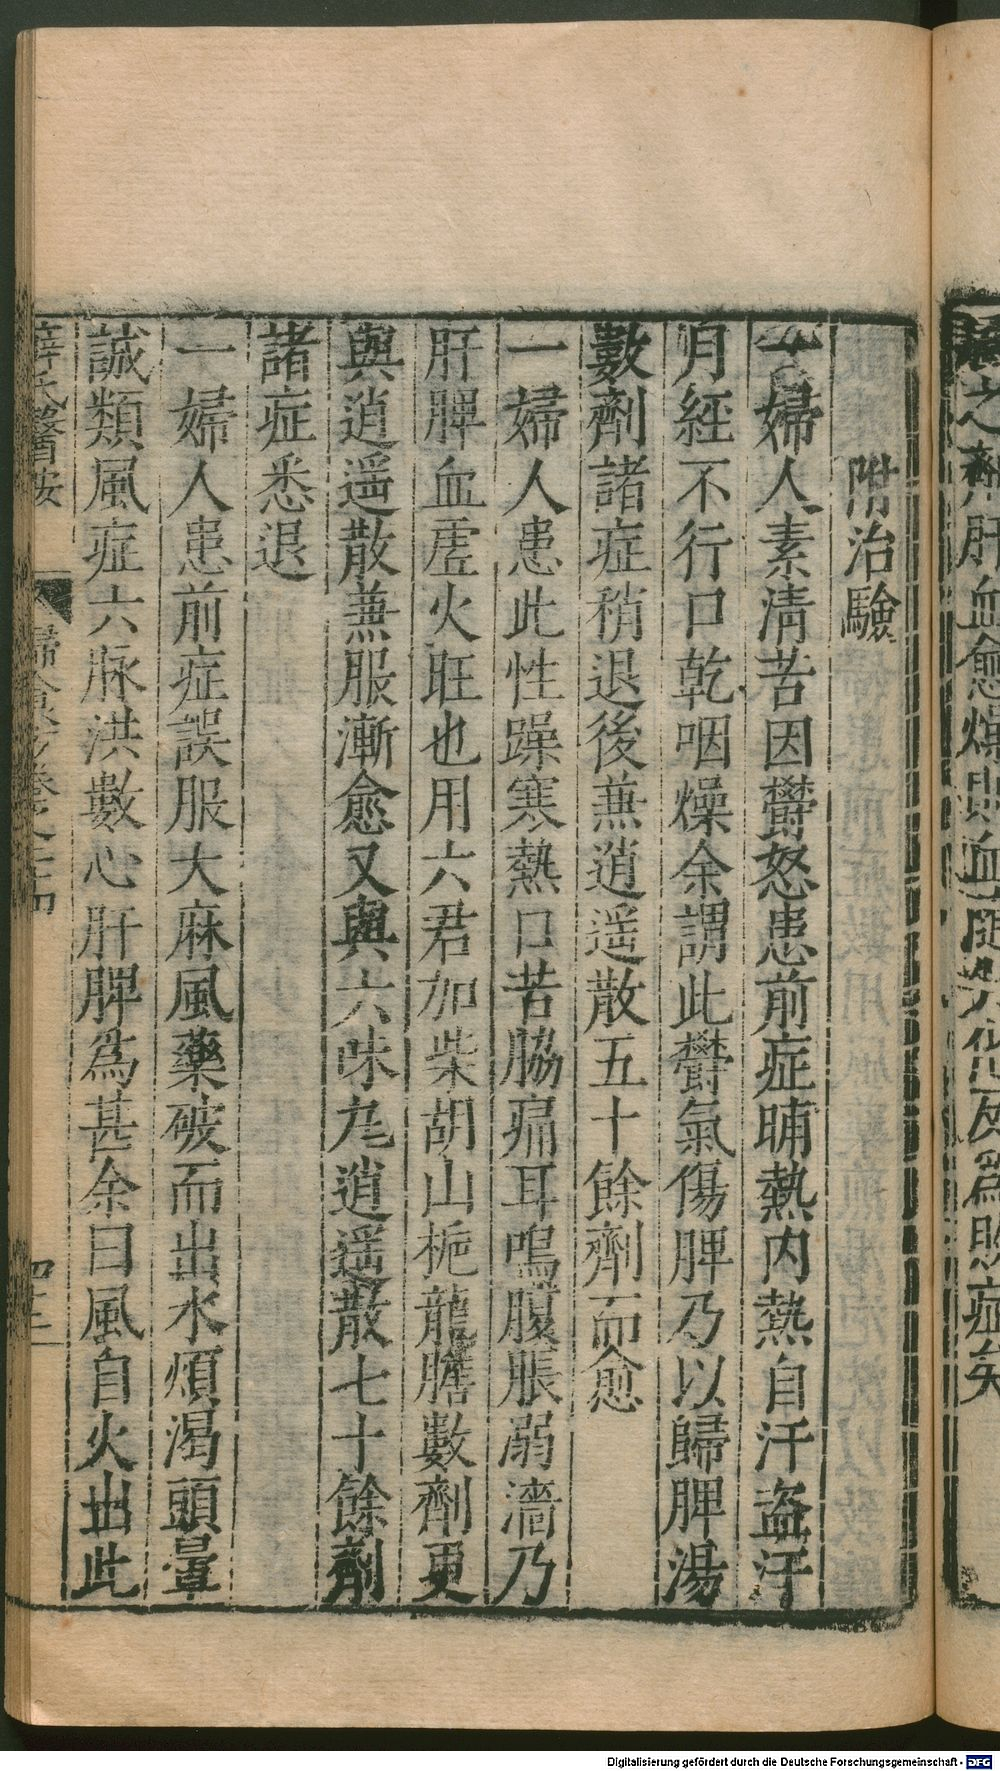 附治驗
一婦人素清苦因鬱怒患前症晡熱内熱自汗盗汗
月經不行口乾咽燥余謂此鬱氣傷脾乃以歸脾湯
數劑諸症稍退後兼逍遥散五十餘劑而愈
一婦人患此性躁寒熱口苦脇痛耳鳴腹脹溺濇乃
肝脾血虗火旺也用六君加柴胡山梔龍膽數劑更
與逍遥散兼服漸愈又與六味丸逍遥散七十餘劑
諸症悉退
一婦人患前症誤服大麻風藥破而出水煩渴頭暈
誠類風症六脉洪數心肝脾爲甚余曰風自火出此
薛氏醫按
婦人良方卷之二十四
四十二
之劑肝血愈燥則血
反爲敗症矣
Digitalisierung gefördert durch die Deutsche Forschungsgemeinschaft - DFG